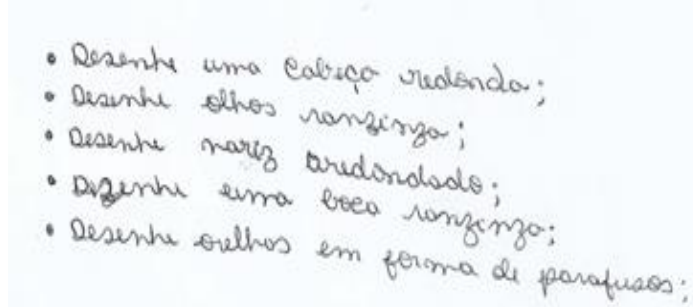 • Desenhe uma cabeça redonda;
• Desenhe olhos ranzinza;
• Desenhe nariz aredondado;
• Dezenhe uma boca ranzinza;
• Desenhe orelhas em forma de parafusos;